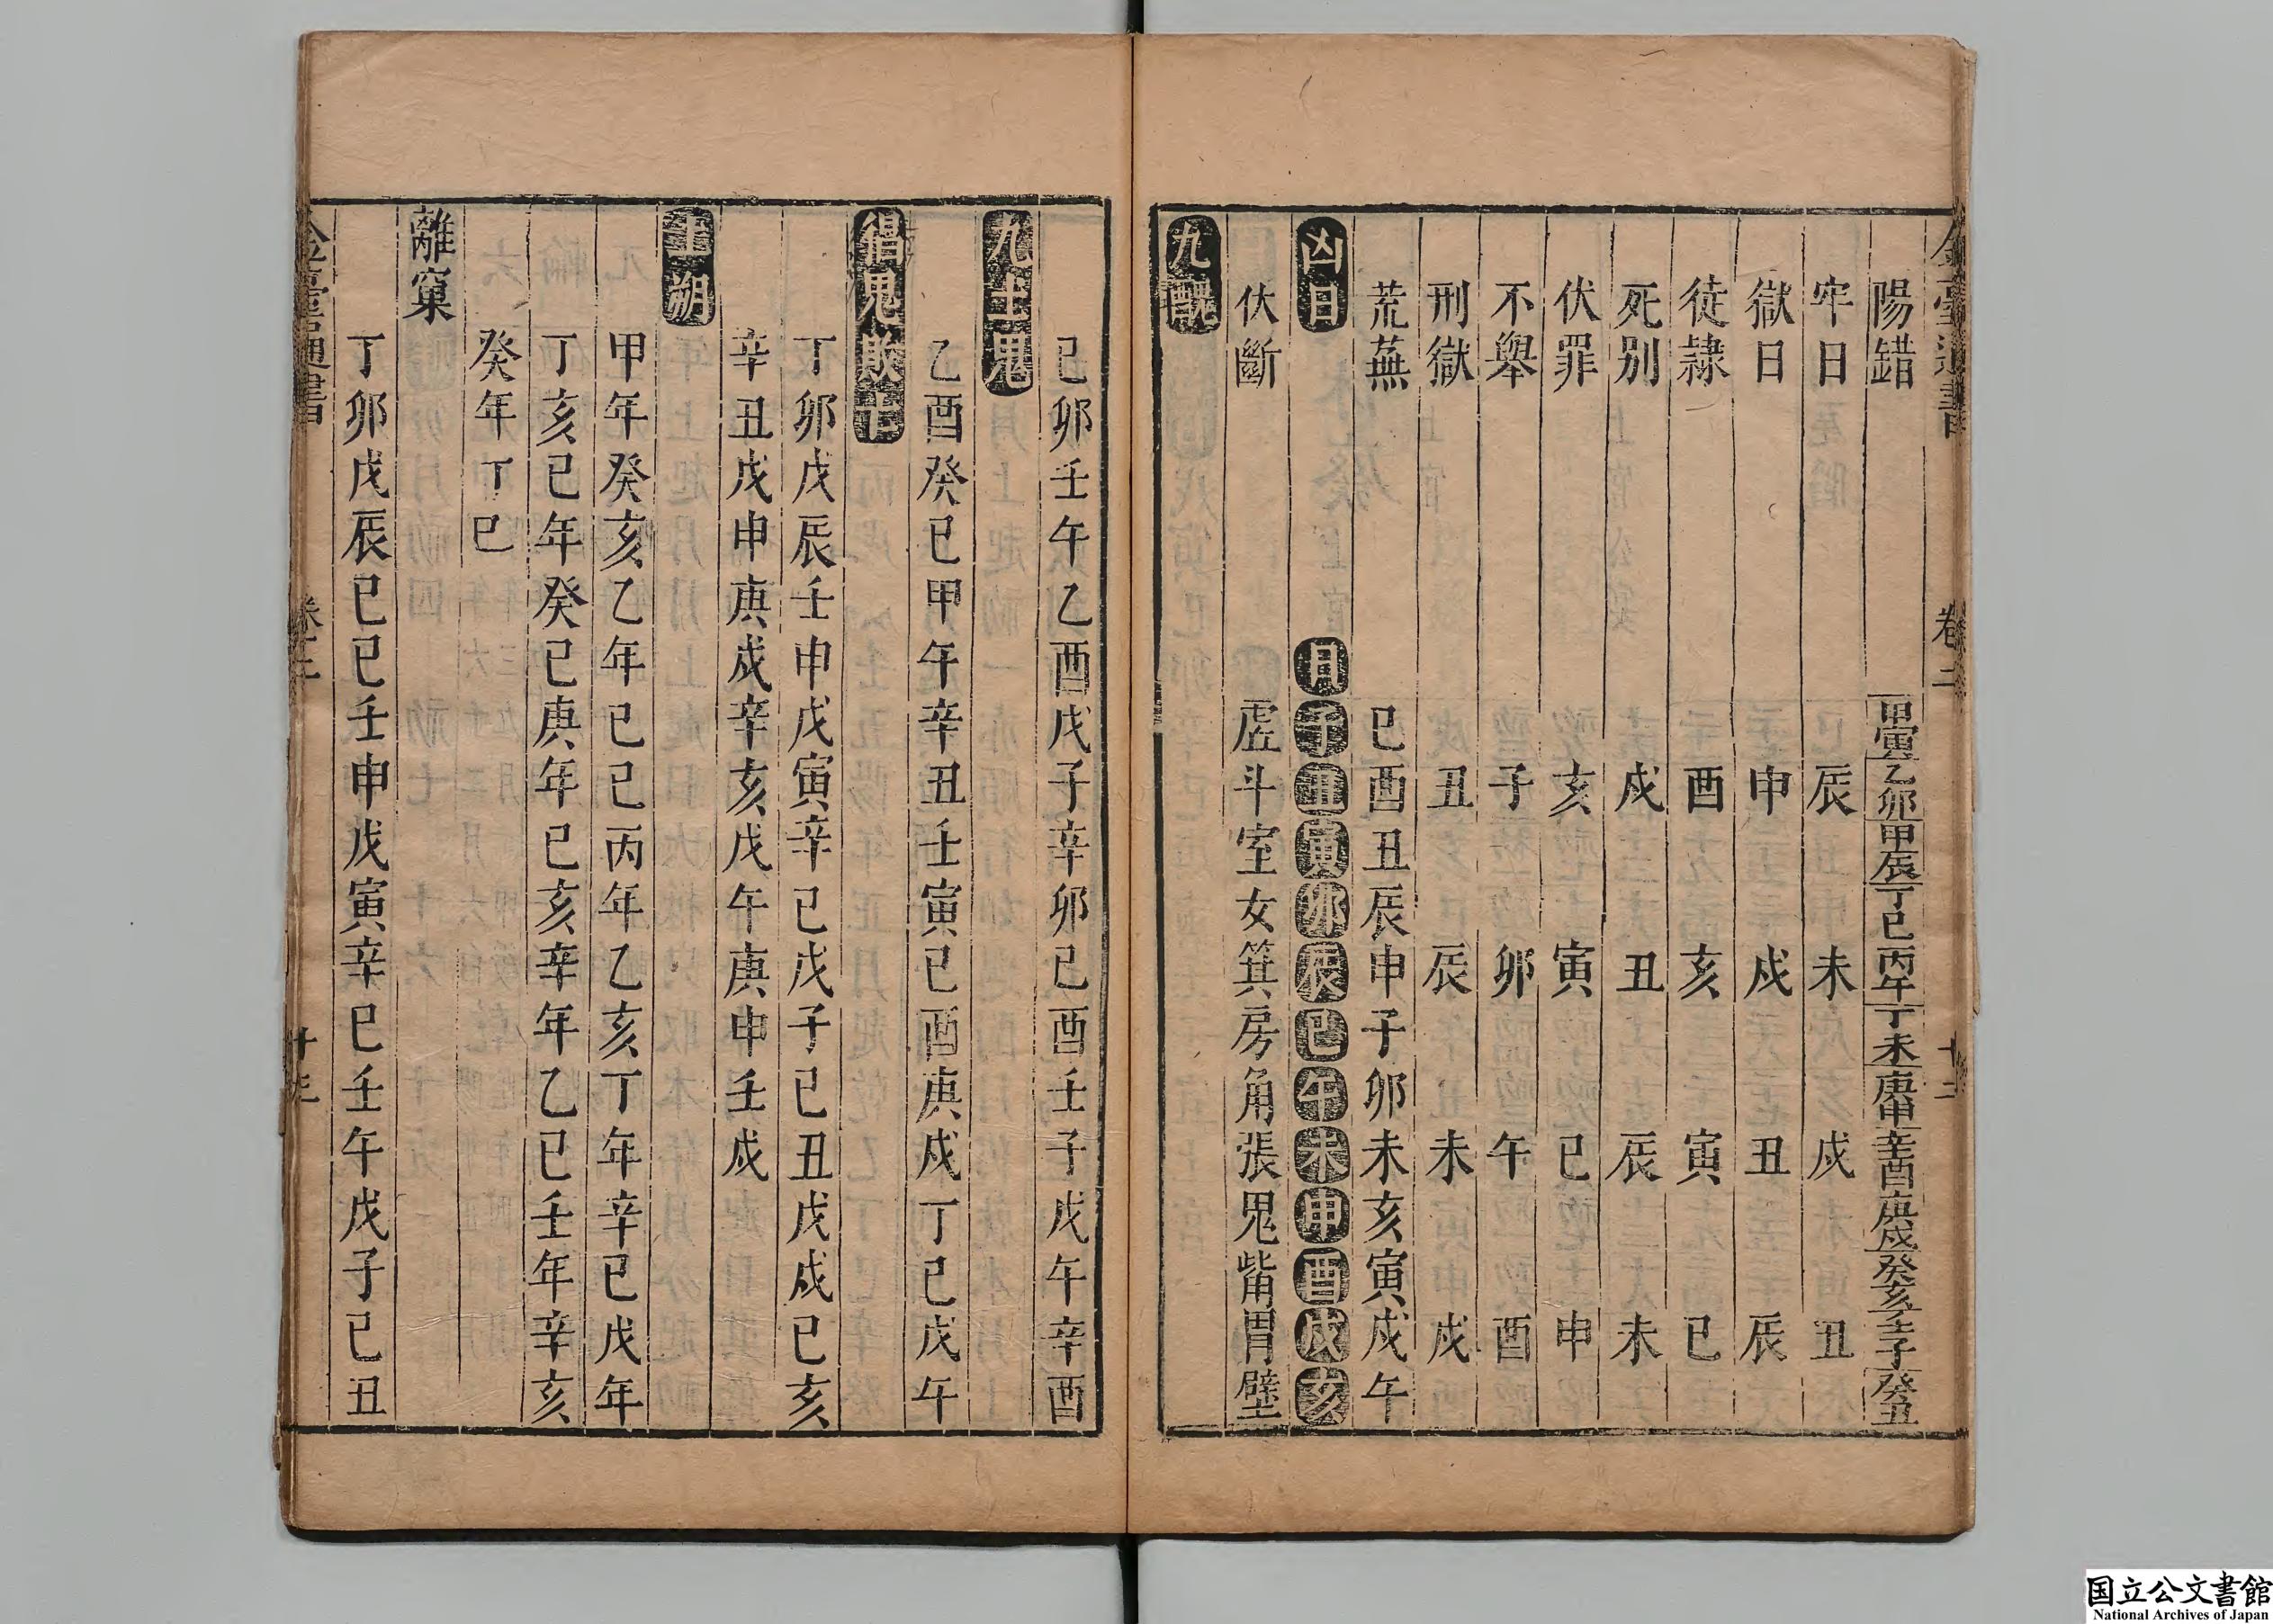 金臺通書 卷二 十二
陽錯 甲寅 乙卯 甲辰 丁巳 丙午 丁未 庚申 辛酉 庚戌 癸亥 壬子 癸丑
牢日 辰 未 戌 丑
獄日 申 戌 丑 辰
徒隸 酉 亥 寅 巳
死别 戌 丑 辰 未
伏罪 亥 寅 巳 申
不舉 子 卯 午 酉
刑獄 丑 辰 未 戌
荒蕪 巳酉丑辰申子卯未亥寅戌午
凶日 月子丑寅卯辰巳午未申酉戌亥
伏斷 虗斗室女箕房角張鬼觜胃壁
九醜
己卯壬午乙酉戊子辛卯己酉壬子戊午辛酉
九土鬼
乙酉癸巳甲午辛丑壬寅己酉庚戌丁巳戊午
猖鬼敗亡
丁卯戊辰壬申戊寅辛巳戊子己丑戊戌己亥
辛丑戊申庚戌辛亥戊午庚申壬戌
上朔
甲年癸亥乙年己巳丙年乙亥丁年辛巳戊年
丁亥己年癸巳庚年己亥辛年乙巳壬年辛亥
癸年丁巳
離窠
丁卯戊辰己巳壬申戊寅辛巳壬午戊子己丑
金臺通書 卷二 十三
国立公文書館
National Archives of Japan